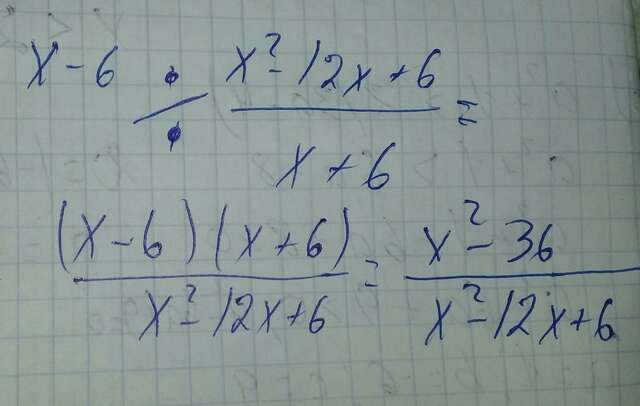 x - 6 ÷ x² - 12x + 6 / x + 6 =
(x - 6)(x + 6) / x² - 12x + 6 = x² - 36 / x² - 12x + 6